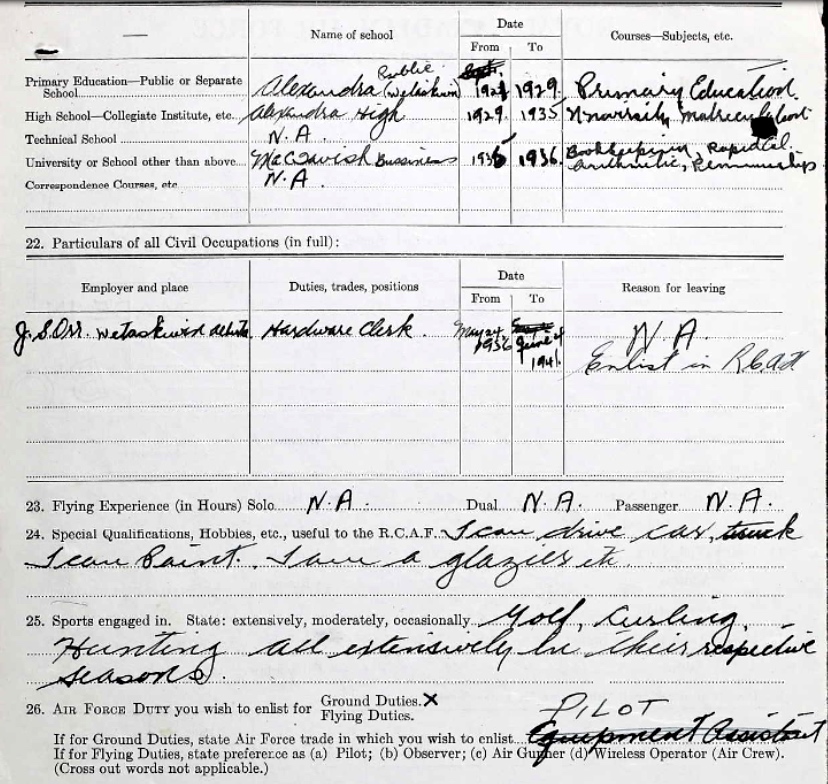 Name of school
Date
From To
Courses—Subjects, etc.
Primary Education—Public or Separate School Alexandra Public (Wetaskiwin) Sept. 1921 1929. Primary Education.
High School—Collegiate Institute, etc. Alexandra High 1929. 1935 University Matriculation
Technical School N.A.
University or School other than above Bussiness 1935 1936. Bookkeeping, Rapid Cal.
Arithmetic, Penmanship.
Correspondence Courses, etc. N.A.
22. Particulars of all Civil Occupations (in full):
Employer and place
Duties, trades, positions
Date
From To
Reason for leaving
J. S. Orr. Wetaskiwin Alberta Hardware Clerk. May 24 1936 June 1941. N.A.
Enlist in RCAF
23. Flying Experience (in Hours) Solo N.A. Dual N.A. Passenger N.A.
24. Special Qualifications, Hobbies, etc., useful to the R.C.A.F. I can drive car, truck
I can Paint. I am a glazier etc.
25. Sports engaged in. State: extensively, moderately, occasionally Golf, Curling,
Hunting all extensively in their respective
seasons.
26. AIR FORCE DUTY you wish to enlist for Ground Duties. X
Flying Duties.
PILOT
If for Ground Duties, state Air Force trade in which you wish to enlist Equipment Assistant
If for Flying Duties, state preference as (a) Pilot; (b) Observer; (c) Air Gunner (d) Wireless Operator (Air Crew).
(Cross out words not applicable.)